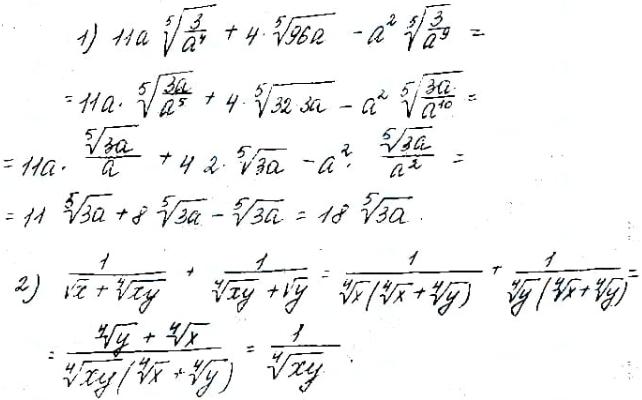 1) 11a ⁵√(3/a⁴) + 4 · ⁵√(96a) − a² ⁵√(3/a⁹) =
= 11a · ⁵√(3a/a⁵) + 4 · ⁵√(32 3a) − a² ⁵√(3a/a¹⁰) =
= 11a · ⁵√(3a)/a + 4 2 · ⁵√(3a) − a² · ⁵√(3a)/a² =
= 11 ⁵√(3a) + 8 ⁵√(3a) − ⁵√(3a) = 18 ⁵√(3a) .
2) 1/(√x + ⁴√(xy)) + 1/(⁴√(xy) + √y) = 1/(⁴√x (⁴√x + ⁴√y)) + 1/(⁴√y (⁴√x + ⁴√y)) =
= (⁴√y + ⁴√x)/(⁴√(xy) (⁴√x + ⁴√y)) = 1/⁴√(xy) .